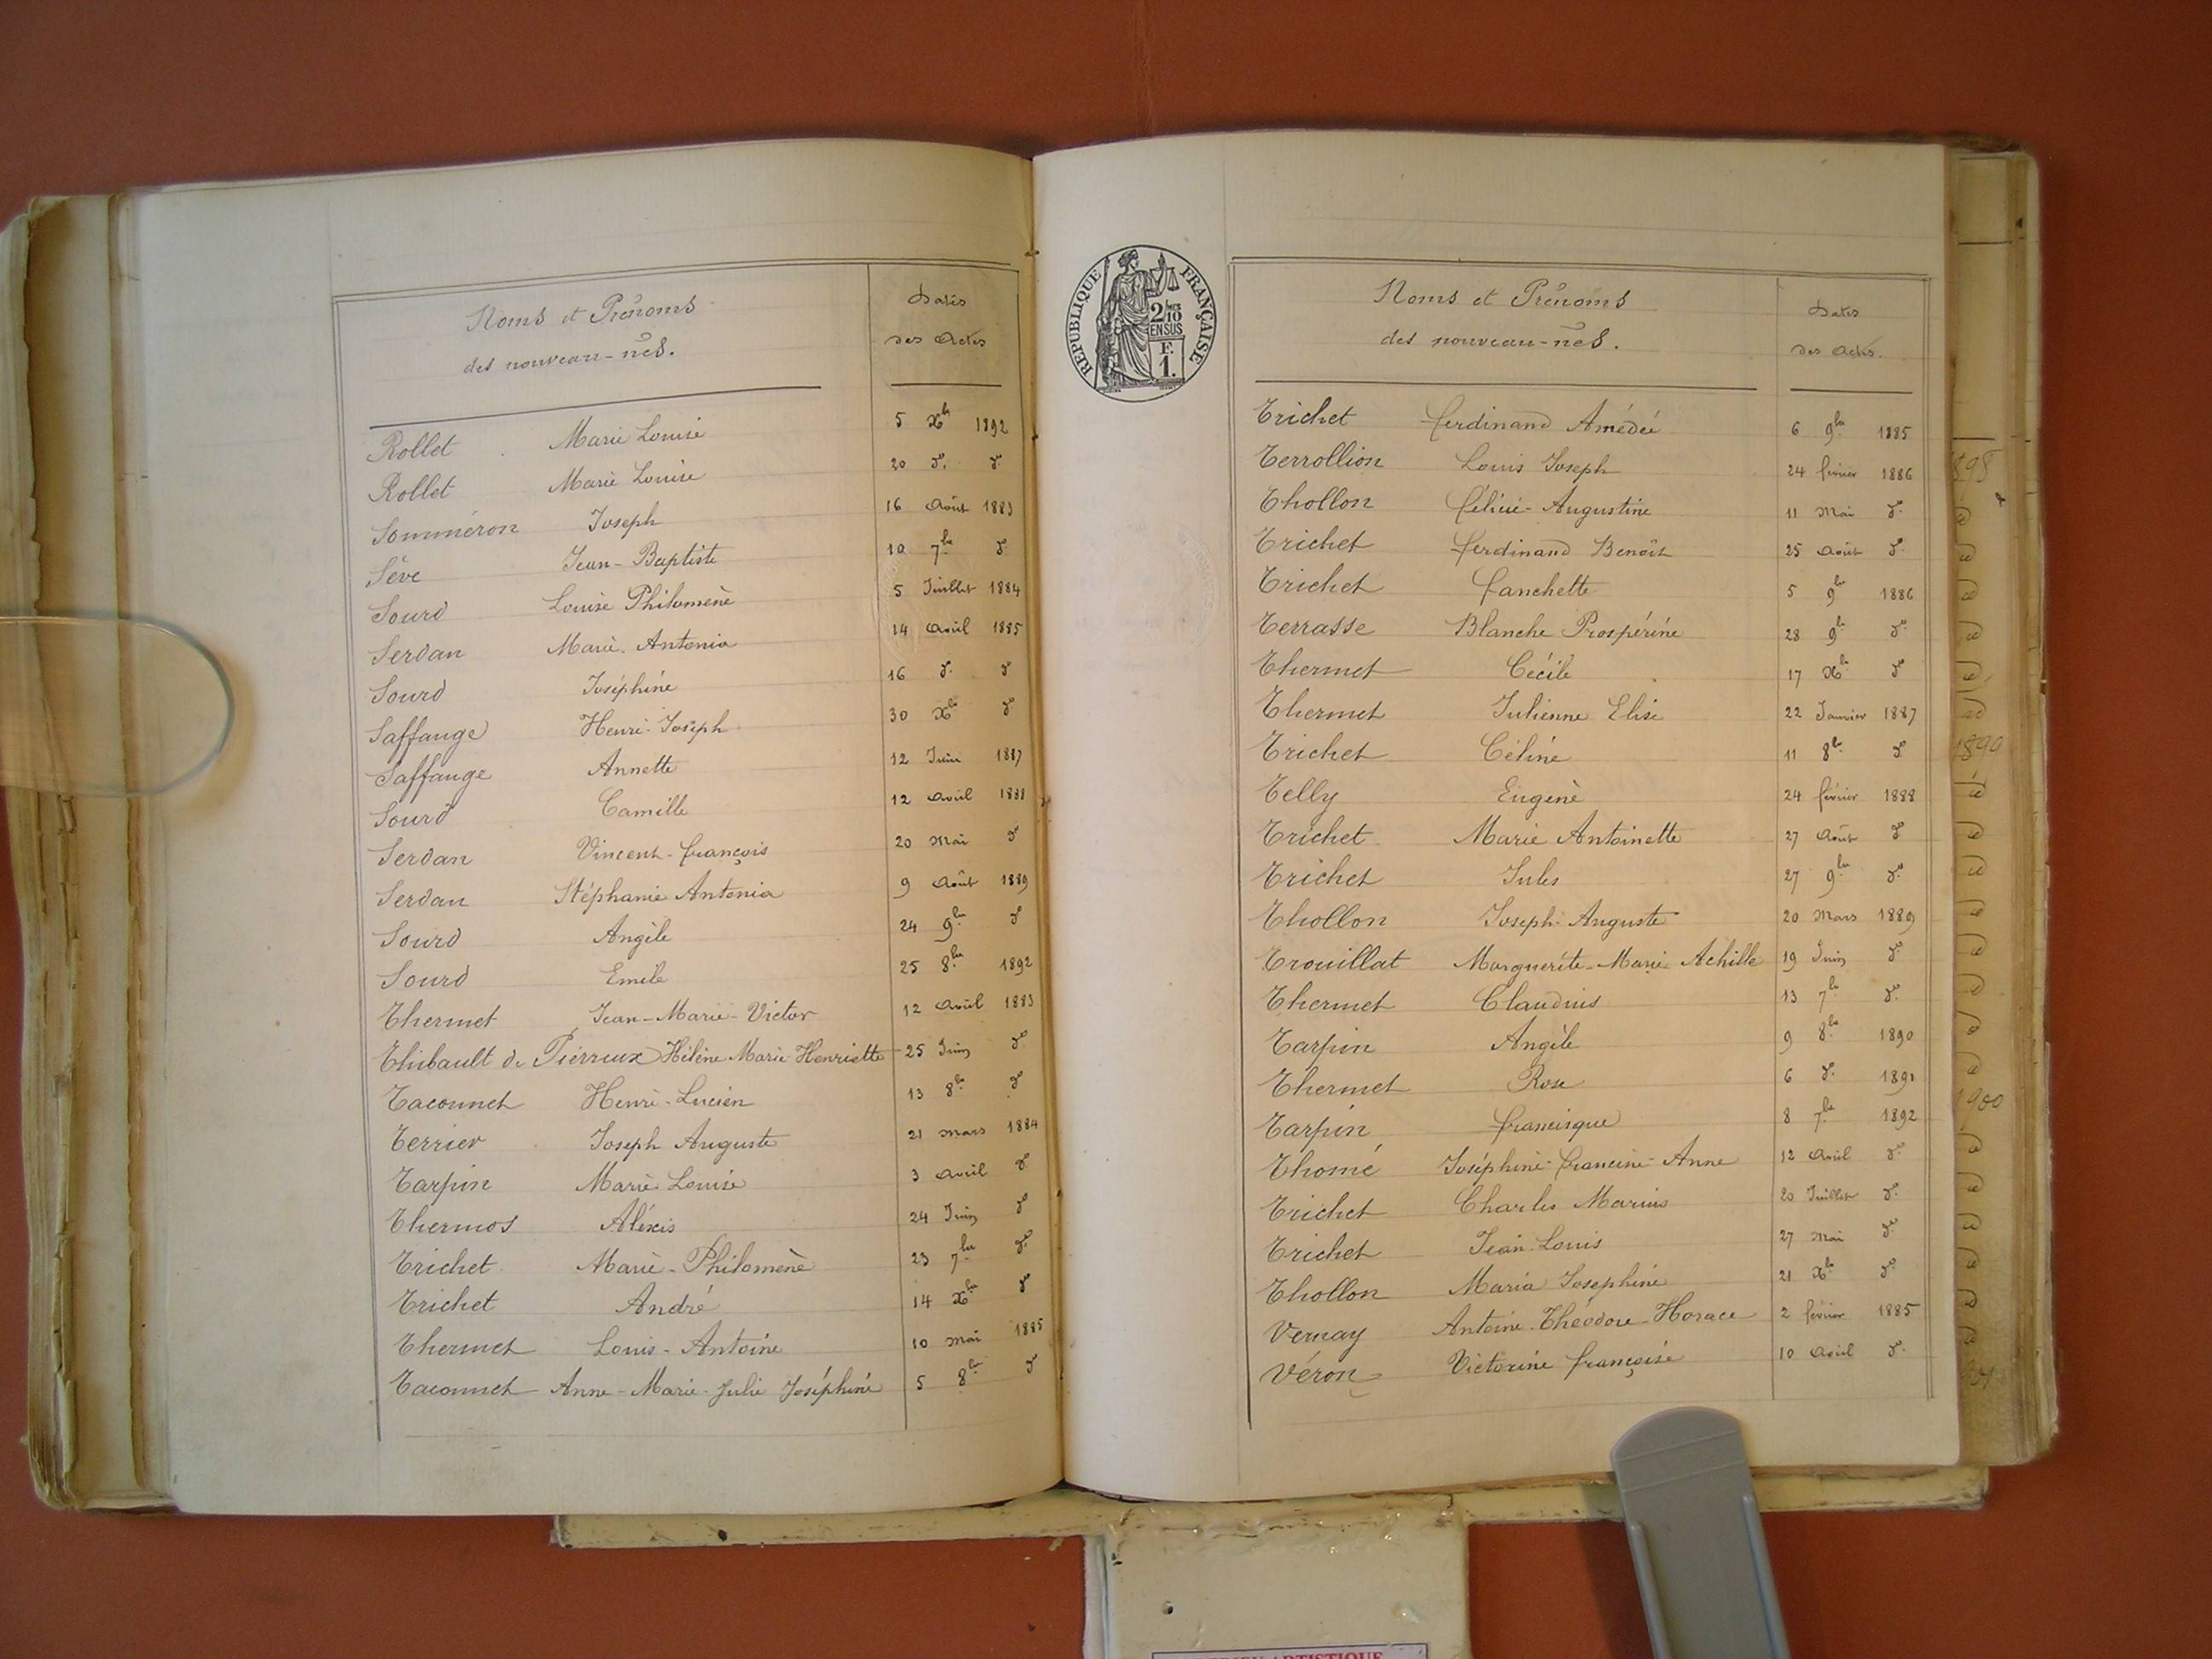 Noms et Prénoms
des nouveau-nés.
Dates
des Actes
Rollet Marie Louise 5 Xbre 1892
Rollet Marie Louise 20 do do
Somméron Joseph 16 Août 1883
Sève Jean-Baptiste 10 7bre do
Sourd Louise Philomène 5 Juillet 1884
Serdan Marie Antonia 14 Avril 1885
Sourd Joséphine 16 do do
Saffange Henri-Joseph 30 Xbre do
Saffange Annette 12 Juin 1887
Sourd Camille 12 Avril 1888
Serdan Vincent-François 20 Mai do
Serdan Stéphanie Antonia 9 Août 1889
Sourd Angèle 24 9bre do
Sourd Emile 25 8bre 1892
Thermet Jean-Marie-Victor 12 Avril 1883
Thibault de Pierreux Hélène Marie Henriette 25 Juin do
Taconnet Henri-Lucien 13 8bre do
Terrier Joseph Auguste 21 Mars 1884
Tarpin Marie Louise 3 Avril do
Thermos Aléxis 24 Juin do
Trichet Marie-Philomène 23 7bre do
Trichet André 14 Xbre do
Thermet Louis-Antoine 10 Mai 1885
Taconnet Anne-Marie-Julie Joséphine 5 8bre do
REPUBLIQUE FRANÇAISE
2/10
EN SUS
F.
1.
Noms et Prénoms
des nouveau-nés.
Dates
des Actes.
Trichet Ferdinand Amédée 6 9bre 1885
Terrollion Louis Joseph 24 février 1886
Thollon Félicie-Augustine 11 Mai do
Trichet Ferdinand Benoît 25 Août do
Trichet Fanchette 5 9bre 1886
Terrasse Blanche Prospérine 28 9bre do
Thermet Cécile 17 Xbre do
Thermet Julienne Elise 22 Janvier 1887
Trichet Céline 11 8bre do
Telly Eugène 24 février 1888
Trichet Marie Antoinette 27 Août do
Trichet Jules 27 9bre do
Thollon Joseph-Auguste 20 Mars 1889
Trouillat Marguerite-Marie Achille 19 Juin do
Thermet Claudius 13 7bre do
Tarpin Angèle 9 8bre 1890
Thermet Rose 6 do 1891
Tarpin Francisque 8 7bre 1892
Thomé Joséphine-Francine-Anne 12 Avril do
Trichet Charles Marius 20 Juillet do
Trichet Jean-Louis 27 Mai do
Thollon Maria Josephine 21 Xbre do
Vernay Antoine-Théodore-Horace 2 février 1885
Véron Victorine Françoise 10 Avril do
1899
1900